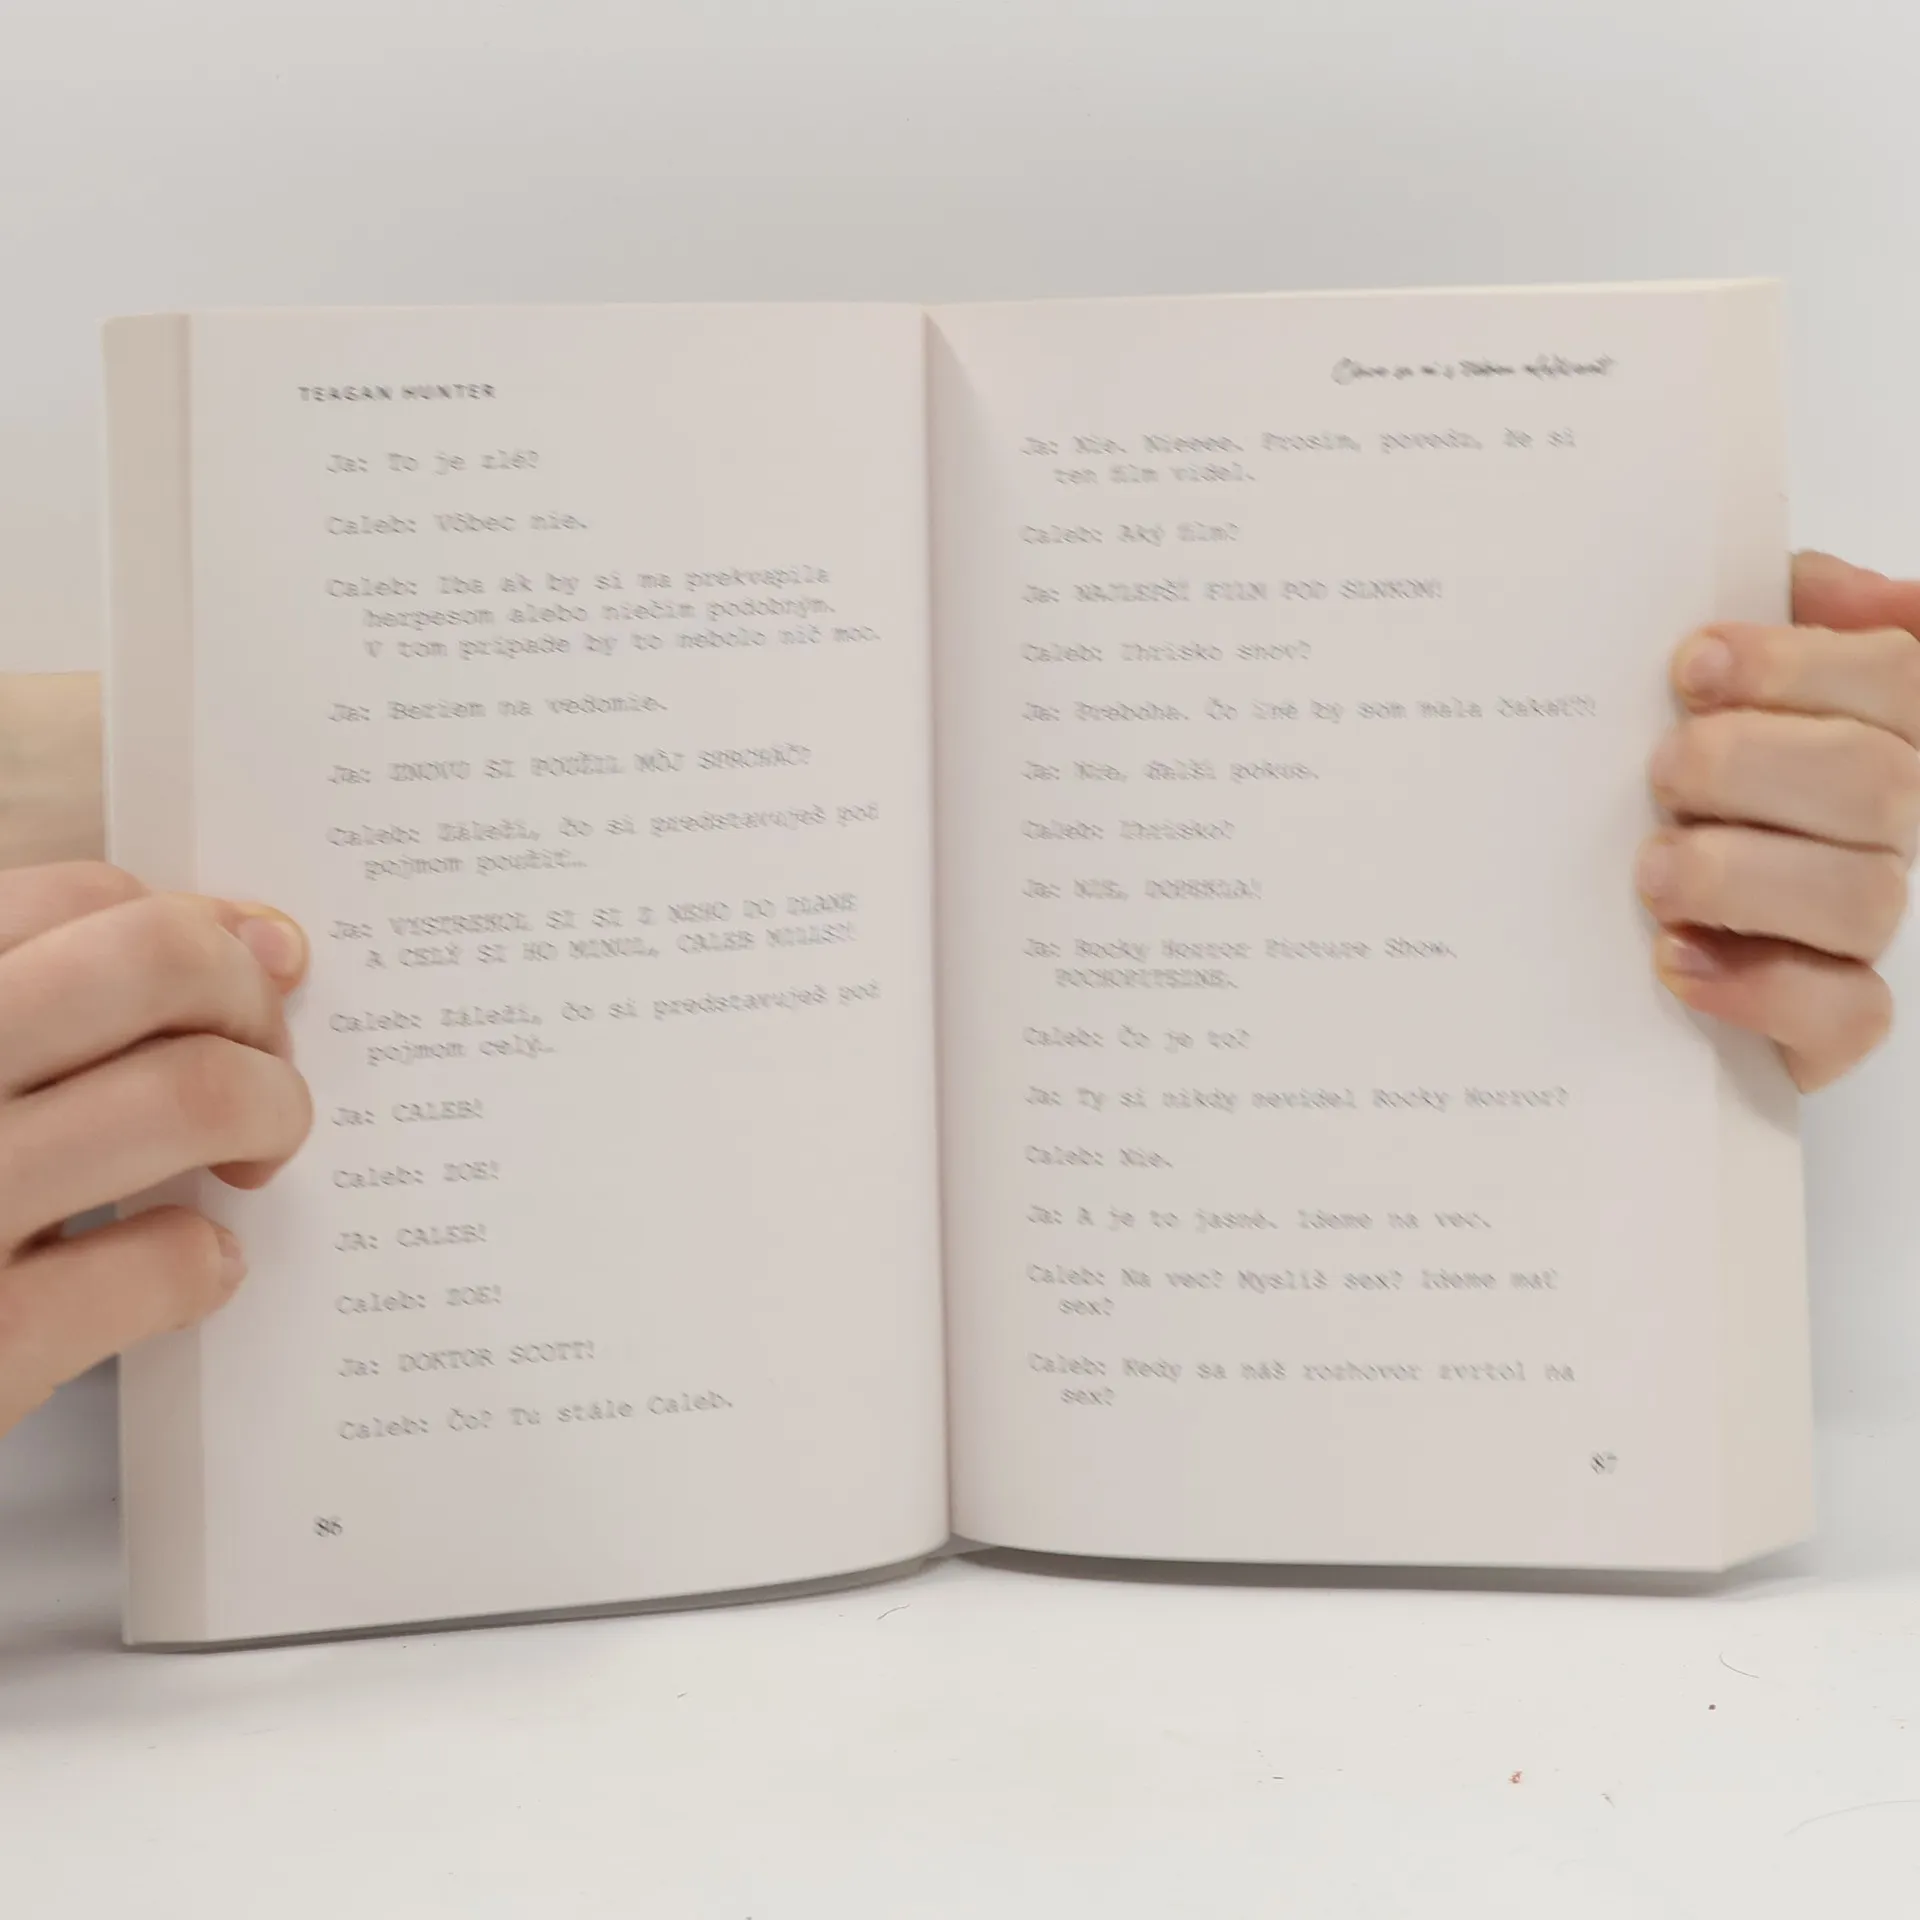 TEAGAN HUNTER
Ja: To je zlé?
Caleb: Vôbec nie.
Caleb: Iba ak by si ma prekvapila
herpesom alebo niečím podobným.
V tom prípade by to nebolo nič moc.
Ja: Beriem na vedomie.
Ja: ZNOVU SI POUŽIL MÔJ SPRCHÁČ?
Caleb: Záleží, čo si predstavuješ pod
pojmom použiť…
Ja: VYSTREKOL SI SI Z NEHO DO DLANE
A CELÝ SI HO MINUL, CALEB MILLS?!
Caleb: Záleží, čo si predstavuješ pod
pojmom celý…
Ja: CALEB!
Caleb: ZOE!
JA: CALEB!
Caleb: ZOE!
Ja: DOKTOR SCOTT!
Caleb: Čo? Tu stále Caleb.
86
Ja: Nie. Nieeee. Prosím, povedz, že si
ten film videl.
Caleb: Aký film?
Ja: NAJLEPŠÍ FILM POD SLNKOM!
Caleb: Ihrisko snov?
Ja: Preboha. Čo iné by som mala čakať?!
Ja: Nie, ďalší pokus.
Caleb: Ihrisko?
Ja: NIE, DOPEKLA!
Ja: Rocky Horror Picture Show.
POCHOPITEĽNE.
Caleb: Čo je to?
Ja: Ty si nikdy nevidel Rocky Horror?
Caleb: Nie.
Ja: A je to jasné. Ideme na vec.
Caleb: Na vec? Myslíš sex? Ideme mať
sex?
Caleb: Kedy sa náš rozhovor zvrtol na
sex?
87